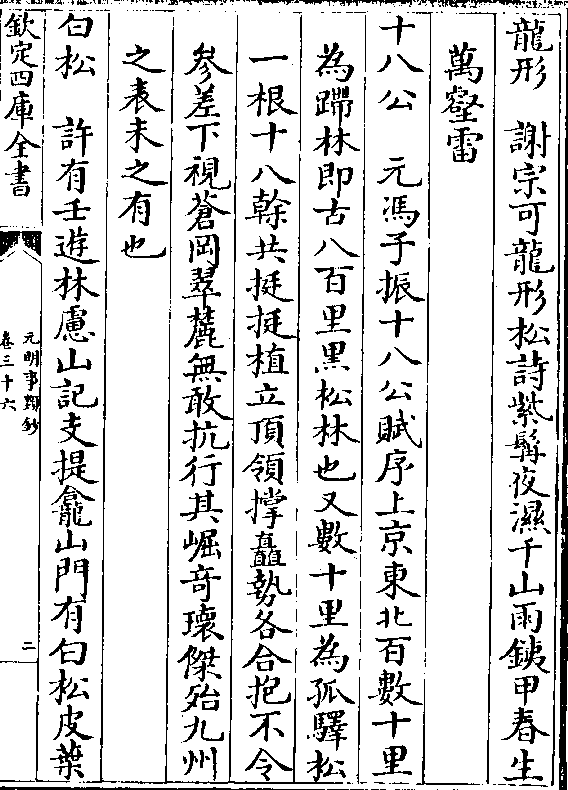 龍形　謝宗可龍形松詩紫髯夜濕千山雨鐵甲春生
萬壑雷
十八公　元馮子振十八公賦序上京東北百數十里
為蹛林即古八百里黑松林也又數十里為孤驛松
一根十八榦共挺挺植立頂領撑矗勢各合抱不令
參差下視蒼岡翠麓無敢抗行其崛奇瓌傑殆九州
之表未之有也
白松　許有壬遊林慮山記支提龕山門有白松皮葉
欽定四庫全書
元明事類鈔
卷三十六
二